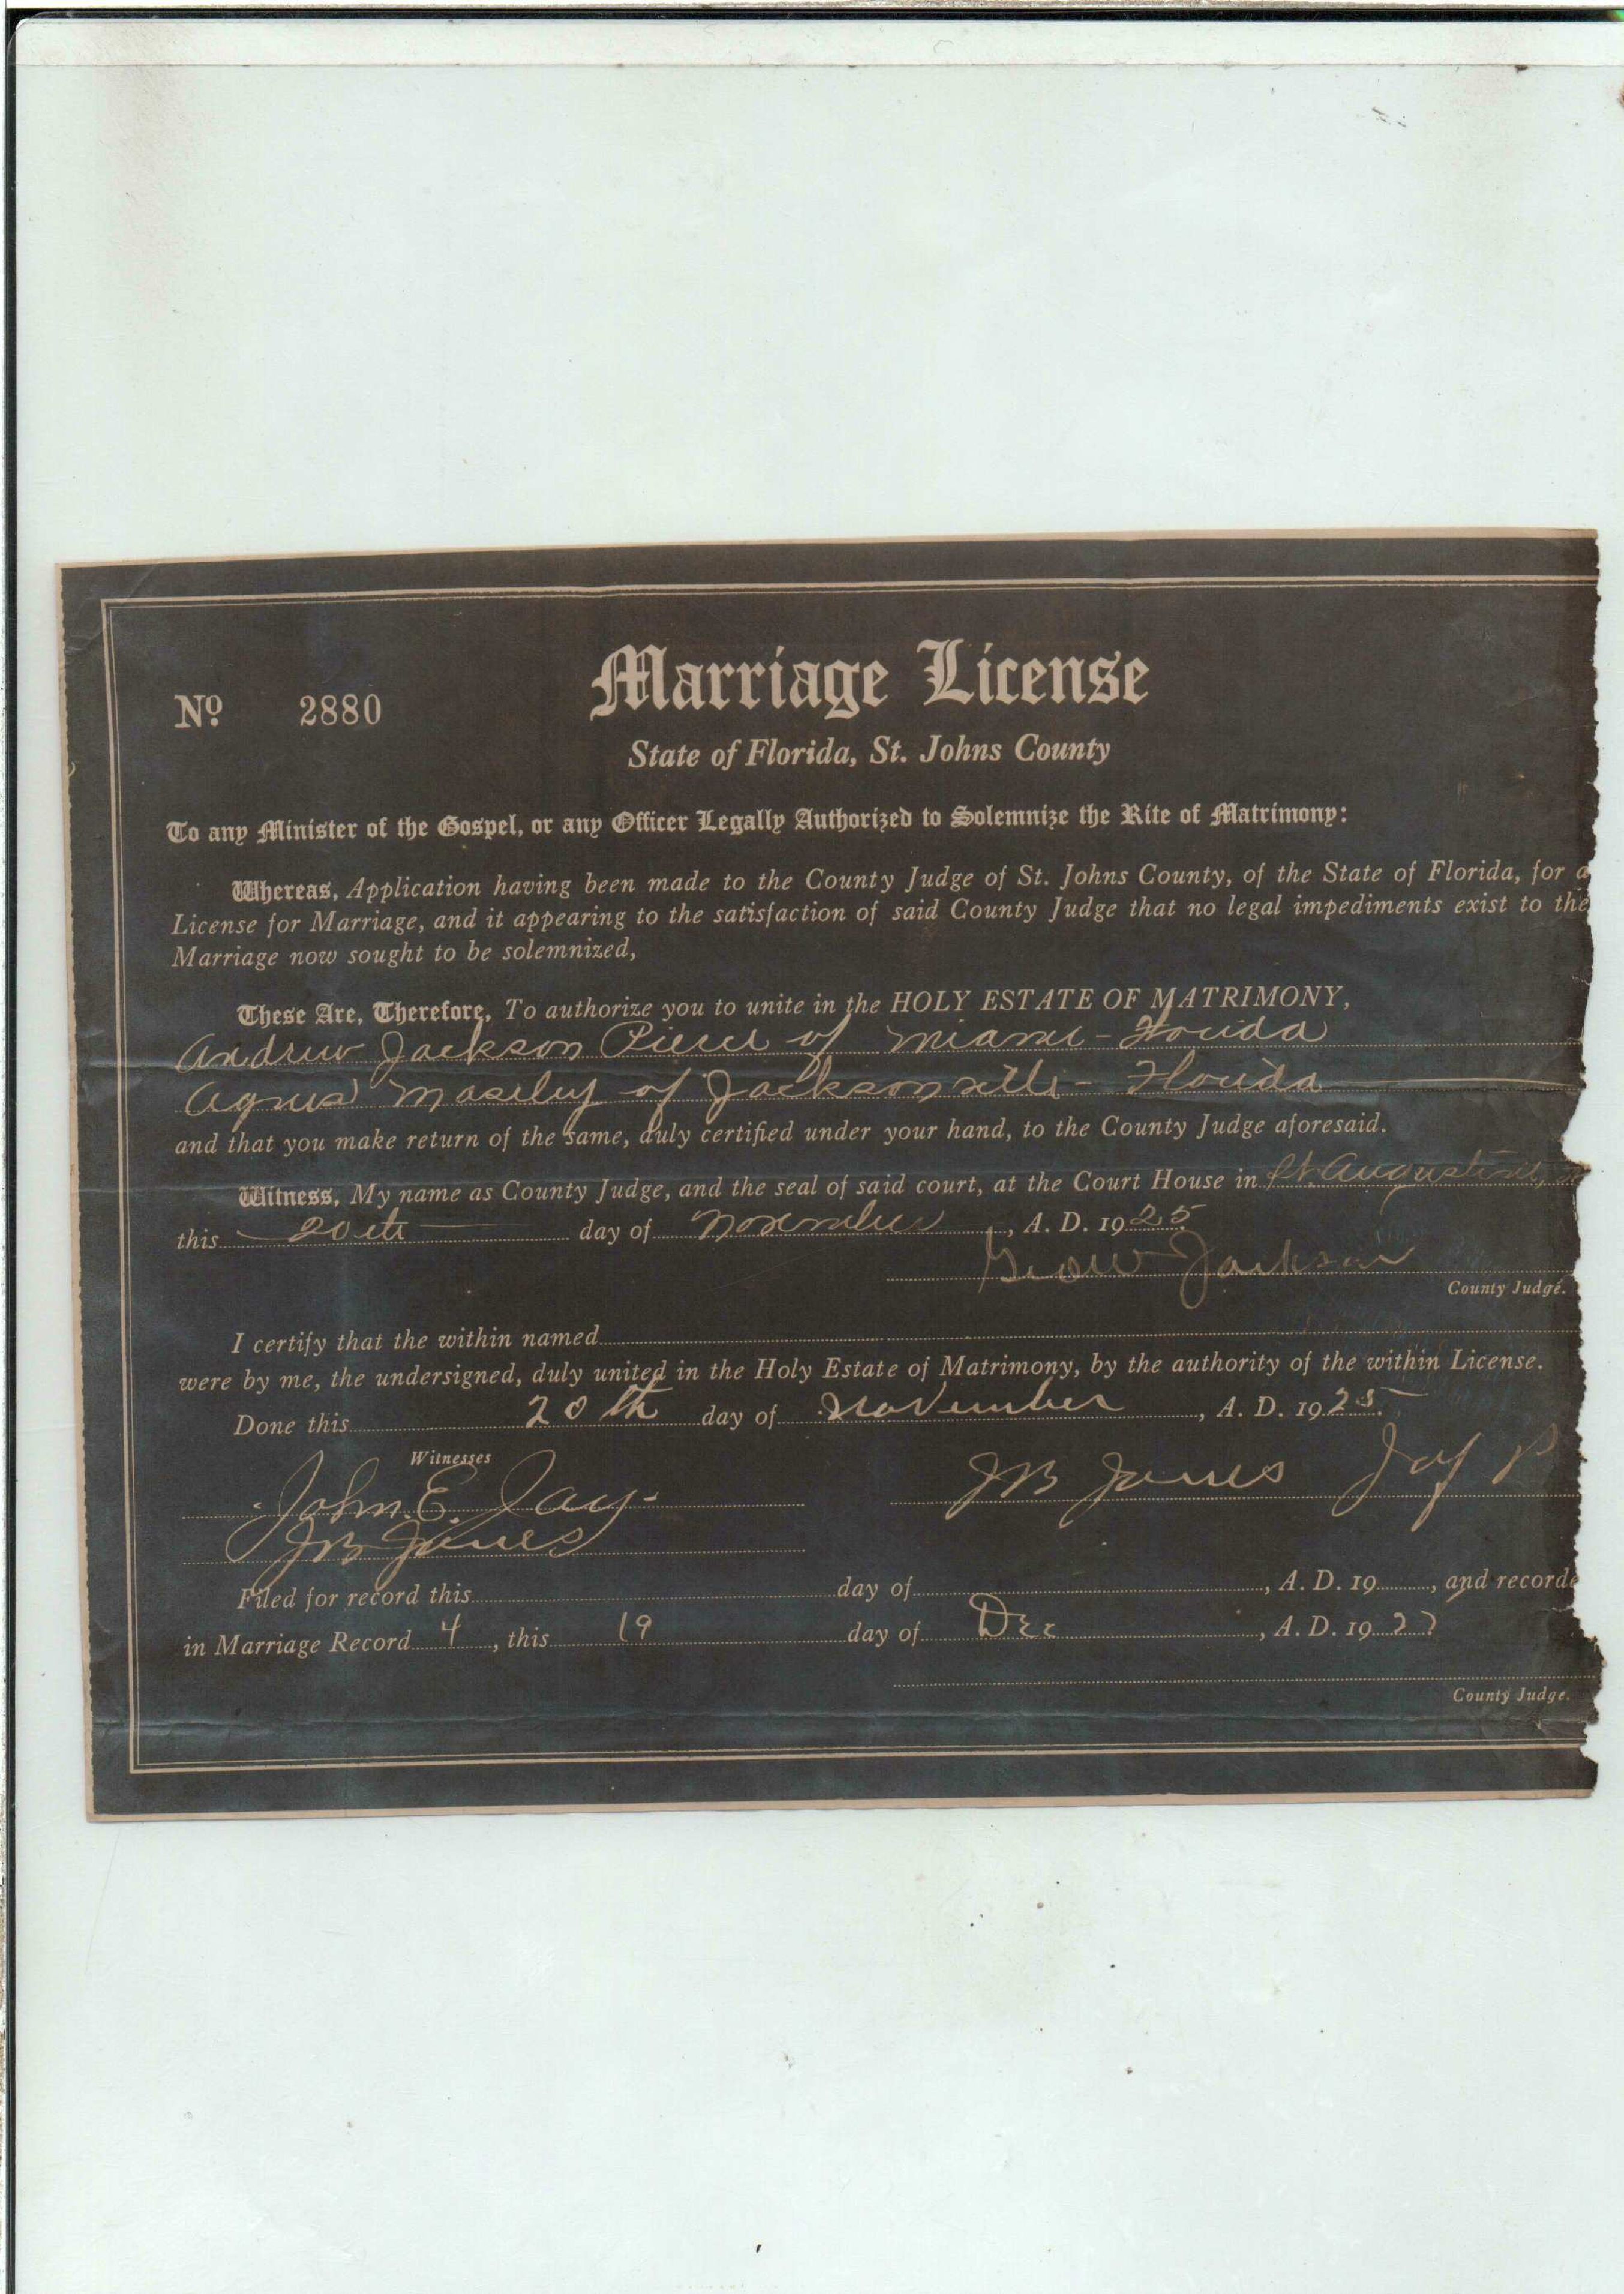 Marriage License
Nº 2880
State of Florida, St. Johns County
To any Minister of the Gospel, or any Officer Legally Authorized to Solemnize the Rite of Matrimony:
Whereas, Application having been made to the County Judge of St. Johns County, of the State of Florida, for a
License for Marriage, and it appearing to the satisfaction of said County Judge that no legal impediments exist to the
Marriage now sought to be solemnized,
These Are, Therefore, To authorize you to unite in the HOLY ESTATE OF MATRIMONY,
Andrew Jackson Pierce of Miami - Florida
Agnes Moseley of Jacksonville - Florida
and that you make return of the same, duly certified under your hand, to the County Judge aforesaid.
Witness, My name as County Judge, and the seal of said court, at the Court House in St. Augustine,
this 20th day of November, A. D. 1925
Geo W Jackson
County Judge.
I certify that the within named
were by me, the undersigned, duly united in the Holy Estate of Matrimony, by the authority of the within License.
Done this 20th day of November, A. D. 1925.
Witnesses
John. E. Jay. JB Jones
JB Jones
Filed for record this day of, A. D. 19, and recorde
in Marriage Record 4, this 19 day of Dec, A. D. 19
County Judge.